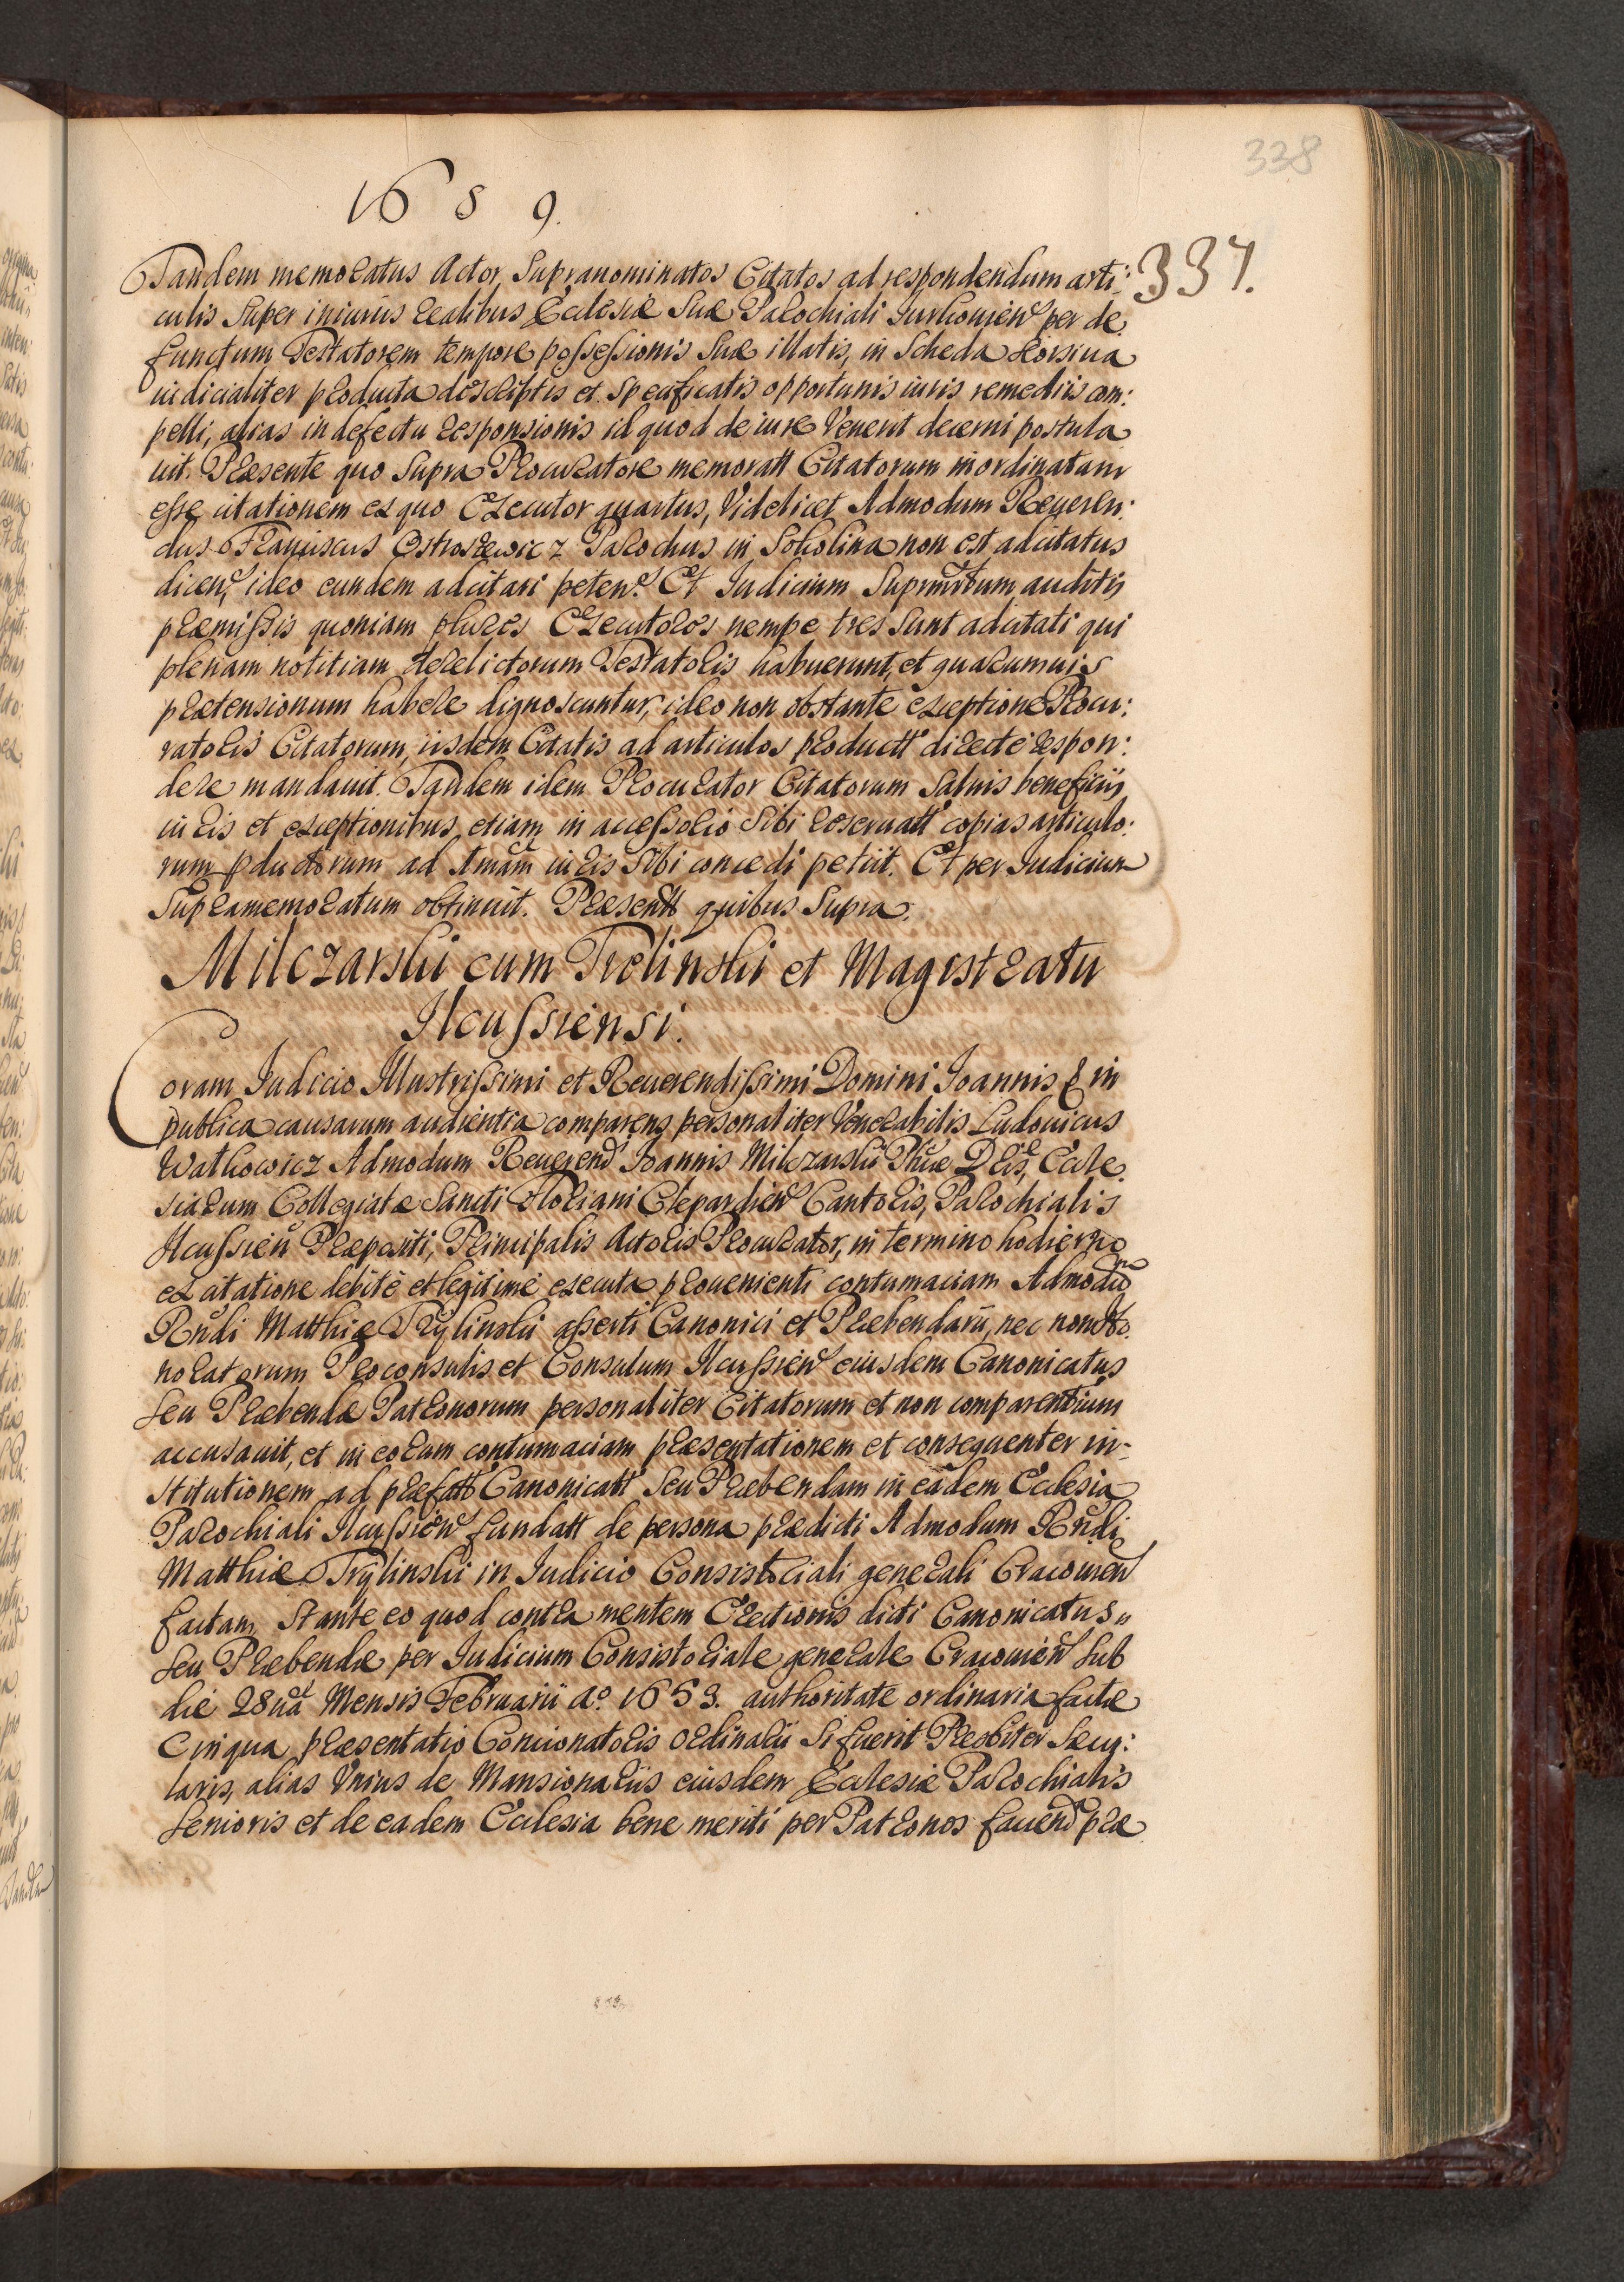 338
1689.
337.
Tandem memoratus Actor, Supranominatos Citatos ad respondendum arti:
culis Super iniuriis realibus Ecclesiæ Suæ Parochiali per de
functum Testatorem tempore possessionis Suæ illatis, in Scheda Seorsiva
iudicialiter producta descriptis et specificatis opportunis iuris remediis com:
pelli, alias in defectu responsionis id quod de iure Venerit decerni postula
uit. Præsente quo Supra Procuratore memoratt Citatorum inordinatam
esse citationem ex quo Executor quartus, Videlicet Admodum Reueren:
dus Franciscus Parochus in Sokolina non est adcitatus
dicen, ideo eundem adcitari peten. Et Iudicium auditis
præmissis quoniam plures Executores nempe tres Sunt adcitati qui
plenam notitiam derelictorum Testatoris habuerunt, et qualumuis
prætensionum habere dignoscuntur, ideo non obstante exceptione Procu:
ratoris Citatorum, iisdem Citatis ad articulos productt directe respon:
dere mandauit. Tandem idem Procurator Citatorum Saluis beneficiis
iuris et exceptionibus, etiam in accessorio Sibi reseruatt copias articulo:
rum pductorum ad iuris Sibi concedi petiit. Et per Iudicium
Supramemoratum obtinuit. Præsentt quibus Supra.
Milczarski cum Trelinski et Magistratu
Ilcussiensi.
Coram Iudicio Illustrissimi et Reuerendissimi Domini Ioannis & in
publica causarum audientia comparens personaliter Venerabilis Ludouicus
Watkowicz Admodum Reuerend Ioannis Milczarski Phiæ Dris, Eccle
siarum Collegiatæ Sancti Floriani Clepardien Cantoris, Parochialis
Ilcussien Præpositi, Principalis Actoris Procurator, in termino hodierno
ex citatione debitè et legitimè executa prouenienti contumaciam Admodū
Rndi Matthiæ Trÿlinski asserti Canonici et Præbendarii, nec non Ho
noratorum Proconsulis et Consulum Ilcussien eiusdem Canonicatus
Seu Præbendæ Patronorum personaliter Citatorum et non comparentium
accusauit, et in eorum contumaciam præsentationem et consequenter in-
stitutionem ad præfatt Canonicatt Seu Præbendam in eadem Ecclesia
Parochiali Ilcussien fundatt de persona prædicti Admodum Rndi
Matthiæ Trÿlinski in Iudicio Consistoriali generali Cracouien
factam, Stante eo quod contra mentem Erectionis dicti Canonicatus
Seu Præbendæ per Iudicium Consistoriale generale Cracouien Sub
die 28uâ Mensis Februarii Aº 1653. authoritate ordinaria factæ
(in qua præsentatio Concionatoris ordinarii Si fuerit Presbiter Sæcu:
laris, alias Vnius de Mansionariis eiusdem Ecclesiæ Parochialis
Senioris et de eadem Ecclesia bene meriti per Patronos fauend præ